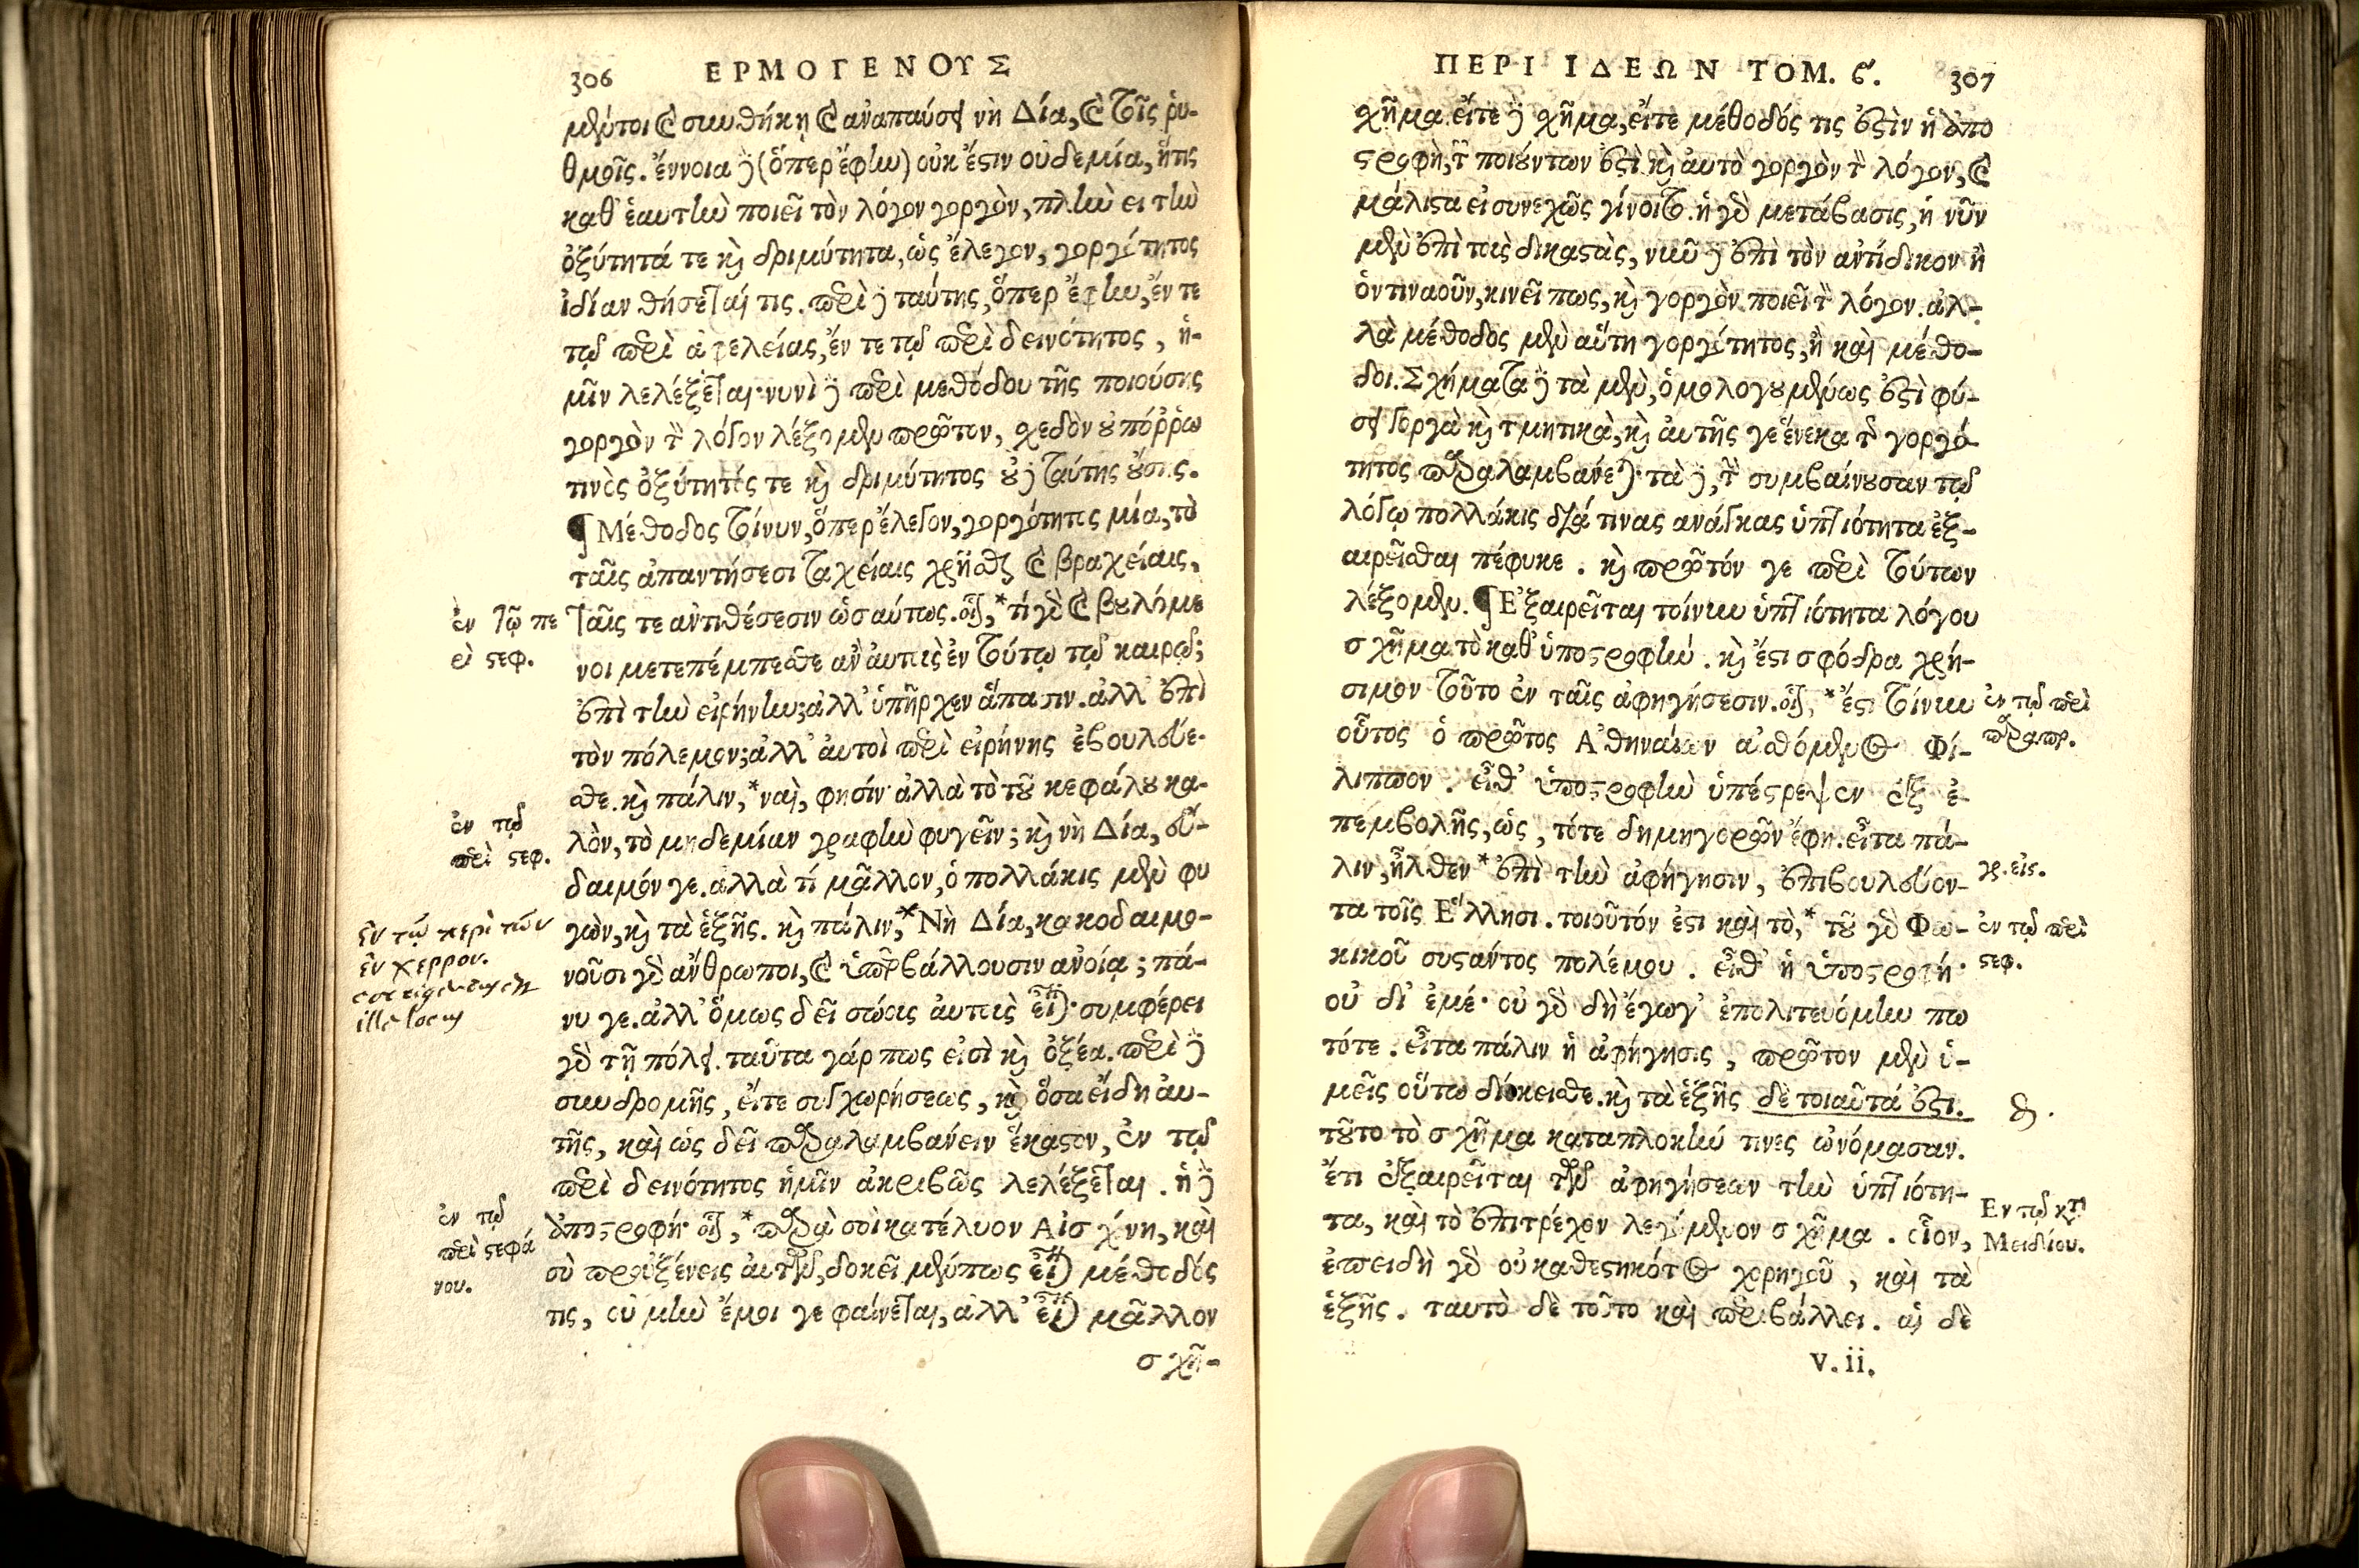 306 ΕΡΜΟΓΕΝΟΥΣ
μὲν τοι καὶ συνθήκῃ καὶ ἀναπαύσει νὴ Δία, καὶ τοῖς ῥυ-
θμοῖς. ἔννοια δὲ (ὅπερ ἔφην) οὐκ ἔστιν οὐδεμία, ἥτις
καθ' ἑαυτὴν ποιεῖ τὸν λόγον γοργὸν, πλὴν ει τὴν
ὀξύτητά τε καὶ δριμύτητα, ὡς ἔλεγον, γοργότητος
ἰδίαν θήσεται τις. περὶ δὲ ταύτης, ὅπερ ἔφην, ἔν τε
τῷ περὶ ἀφελείας, ἔν τε τῷ περὶ δεινότητος, ἡ-
μῖν λελέξεται· νυνὶ δὲ περὶ μεθόδου τῆς ποιούσης
γοργὸν τὸν λόγον λέξομεν πρῶτον, σχεδὸν οὐ πόῤῥω
τινὸς ὀξύτητός τε καὶ δριμύτητος οὐδὲ ταύτης οὔσης.
¶ Μέθοδος τοίνυν, ὅπερ ἔλεγον, γοργότητος μία, τὸ
ταῖς ἀπαντήσεσι ταχείαις χρῆσθαι καὶ βραχείαις,
ταῖς τε ἀντιθέσεσιν ὡσαύτως. οἷον, * τί γὰρ καὶ βουλόμε
νοι μετεπέμπεσθε ἂν αὐτοὺς ἐν τούτῳ τῷ καιρῷ;
ἐπὶ τὴν εἰρήνην; ἀλλ' ὑπῆρχεν ἅπασιν. ἀλλ' ἐπὶ
τὸν πόλεμον; ἀλλ' αὐτοὶ περὶ εἰρήνης ἐβουλεύε-
σθε. καὶ πάλιν, * ναὶ, φησίν· ἀλλὰ τὸ τοῦ κεφάλου κα-
λὸν, τὸ μηδεμίαν γραφὴν φυγεῖν; καὶ νὴ Δία, εὔ-
δαιμόν γε. ἀλλὰ τί μᾶλλον, ὁ πολλάκις μὲν φυ
γὼν, καὶ τὰ ἑξῆς. καὶ πάλιν, * Νὴ Δία, κακοδαιμο-
νοῦσι γὰρ ἄνθρωποι, καὶ ὑπερβάλλουσιν ἀνοίᾳ; πά-
νυ γε. ἀλλ' ὅμως δεῖ σώους αὐτοὺς εἶναι· συμφέρει
γὰρ τῇ πόλει. ταῦτα γάρ πως εἰσὶ καὶ ὀξέα. περὶ δὲ
συνδρομῆς, εἴτε συγχωρήσεως, καὶ ὅσα εἴδη αυ-
τῆς, καὶ ὡς δεῖ παραλαμβάνειν ἕκαστον, ἐν τῷ
περὶ δεινότητος ἡμῖν ἀκριβῶς λελέξεται. ἡ δὲ
ἀποστροφή· οἷον, * παρὰ σοὶ κατέλυον Αἰσχίνη, καὶ
σὺ προὐξένεις αὐτῶν, δοκεῖ μέν πως εἶναι μέθοδός
τις, οὐ μὴν ἔμοι γε φαίνεται, ἀλλ' εἶναι μᾶλλον
σχῆ-
ἐν τῷ πε
ρὶ στεφ.
ἐν τῷ
περὶ στεφ.
ἐν τῷ περὶ τῶν
ἐν χερρον.
ille locus
ἐν τῷ
περὶ στεφά
νου.
ΠΕΡΙ ΙΔΕΩΝ ΤΟΜ. ϛ. 307
σχῆμα. εἴτε δὲ σχῆμα, εἴτε μέθοδός τις ἐστὶν ἡ ἀπο
στροφὴ, τῶν ποιούντων ἐστὶ καὶ αὐτὸ γοργὸν τὸν λόγον, καὶ
μάλιστα εἰ συνεχῶς γίνοιτο. ἡ γὰρ μετάβασις, ἡ νῦν
μὲν ἐπὶ τοὺς δικαστὰς, νυνὶ δὲ ἐπὶ τὸν ἀντίδικον ἢ
ὁντιναοῦν, κινεῖ πως, καὶ γοργὸν ποιεῖ τὸν λόγον. ἀλ-
λὰ μέθοδος μὲν αὕτη γοργότητος, ἢ καὶ μέθο-
δοι. Σχήματα δὲ τὰ μὲν, ὁμολογουμένως ἐστὶ φύ-
σει γοργὰ καὶ τμητικὰ, καὶ αὐτῆς γε ἕνεκα τῆς γοργό-
τητος παραλαμβάνεται· τὰ δὲ, τὴν συμβαίνουσαν τῷ
λόγῳ πολλάκις διά τινας ἀνάγκας ὑπτιότητα ἐξ-
αιρεῖσθαι πέφυκε. καὶ πρῶτόν γε περὶ τούτων
λέξομεν. ¶ Ἐξαιρεῖται τοίνυν ὑπτιότητα λόγου
σχῆμα τὸ καθ' ὑποστροφὴν. καὶ ἔστι σφόδρα χρή-
σιμον τοῦτο ἐν ταῖς ἀφηγήσεσιν. οἷον, * ἔστι τοίνυν
οὗτος ὁ πρῶτος Ἀθηναίων αἰσθόμενος Φί-
λιππον. εἶθ' ὑποστροφὴν ὑπέστρεψεν ἐξ ἐ-
πεμβολῆς, ὡς, τότε δημηγορῶν ἔφη. εἶτα πά-
λιν, ἦλθεν * ἐπὶ τὴν ἀφήγησιν, ἐπιβουλεύον-
τα τοῖς Ἕλλησι. τοιοῦτόν ἐστι καὶ τὸ, * τοῦ γὰρ Φω-
κικοῦ συστάντος πολέμου. εἶθ' ἡ ὑποστροφή·
οὐ δι' ἐμέ· οὐ γὰρ δὴ ἔγωγ' ἐπολιτευόμην πω
τότε. εἶτα πάλιν ἡ ἀφήγησις, πρῶτον μὲν ὑ-
μεῖς οὕτω διέκεισθε. καὶ τὰ ἑξῆς δὲ τοιαῦτά ἐστι.
τοῦτο τὸ σχῆμα καταπλοκήν τινες ὠνόμασαν.
ἔτι ἐξαιρεῖται τῶν ἀφηγήσεων τὴν ὑπτιότη-
τα, καὶ τὸ ἐπιτρέχον λεγόμενον σχῆμα. οἷον,
ἐπειδὴ γὰρ οὐ καθεστηκότος χορηγοῦ, καὶ τὰ
ἑξῆς. ταυτὸ δὲ τοῦτο καὶ περιβάλλει. αἱ δὲ
V. ii.
ἐν τῷ περὶ
παραπρ.
γρ. εἰς.
ἐν τῷ περὶ
στεφ.
Ἐν τῷ κατὰ
Μειδίου.